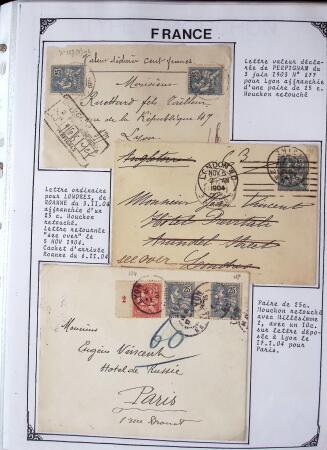 FRANCE
Lettre valeur décla-
rée de PERPIGNAN du
1 juin 1903 N° 877
pour Lyon affranchie
d'une paire de 25 c.
Mouchon retouché
Valeur déclarée cent francs
Monsieur
fils tailleur
rue de la République 47
Lyon
Lettre ordinaire
pour LONDRES, de
ROANNE du 3.II.04
affranchie d'un
25 c. Mouchon
retouché.
Lettre retournée
"see over" le
5 NOV 1904.
Cachet d'arrivée
Roanne du 6.II.04
LONDON
NOV 5
1904
Monsieur Vincent
Hotel
Arundel Street
see over London
Paire de 25c.
Mouchon retouché
avec Millésime
2, avec un 10c.
sur lettre dépo-
sée à Lyon le
17.1.04 pour
Paris.
2
25
25
60
Monsieur
Eugène Vincent
Hotel de Russie
Paris
1 rue Drouot